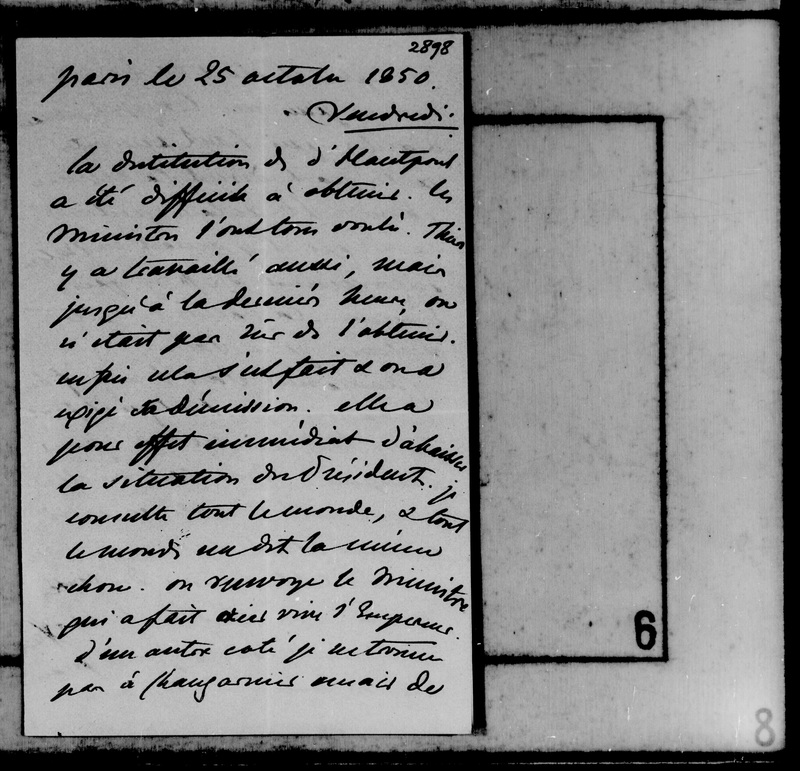 2898
paris le 25 octobre 1850.
Vendredi.
la destitution de d'Hautpoul
a été difficile à obtenir. les
Ministres l'ont tous voulu. Thiers
y a travaillé aussi, mais
jusqu'à la dernière heure, on
n'était pas sûr de l'obtenir.
enfin cela s'est fait & on a
exigé sa démission. elle a
pour effet immédiat d'abaisser
la situation du Président. je
consulte tout le monde, & tout
le monde me dit la même
chose. on renvoye le Ministre
qui a fait crier vive l'Empereur.
d'un autre coté je ne trouve
pas à Changarnier mais de
6
8